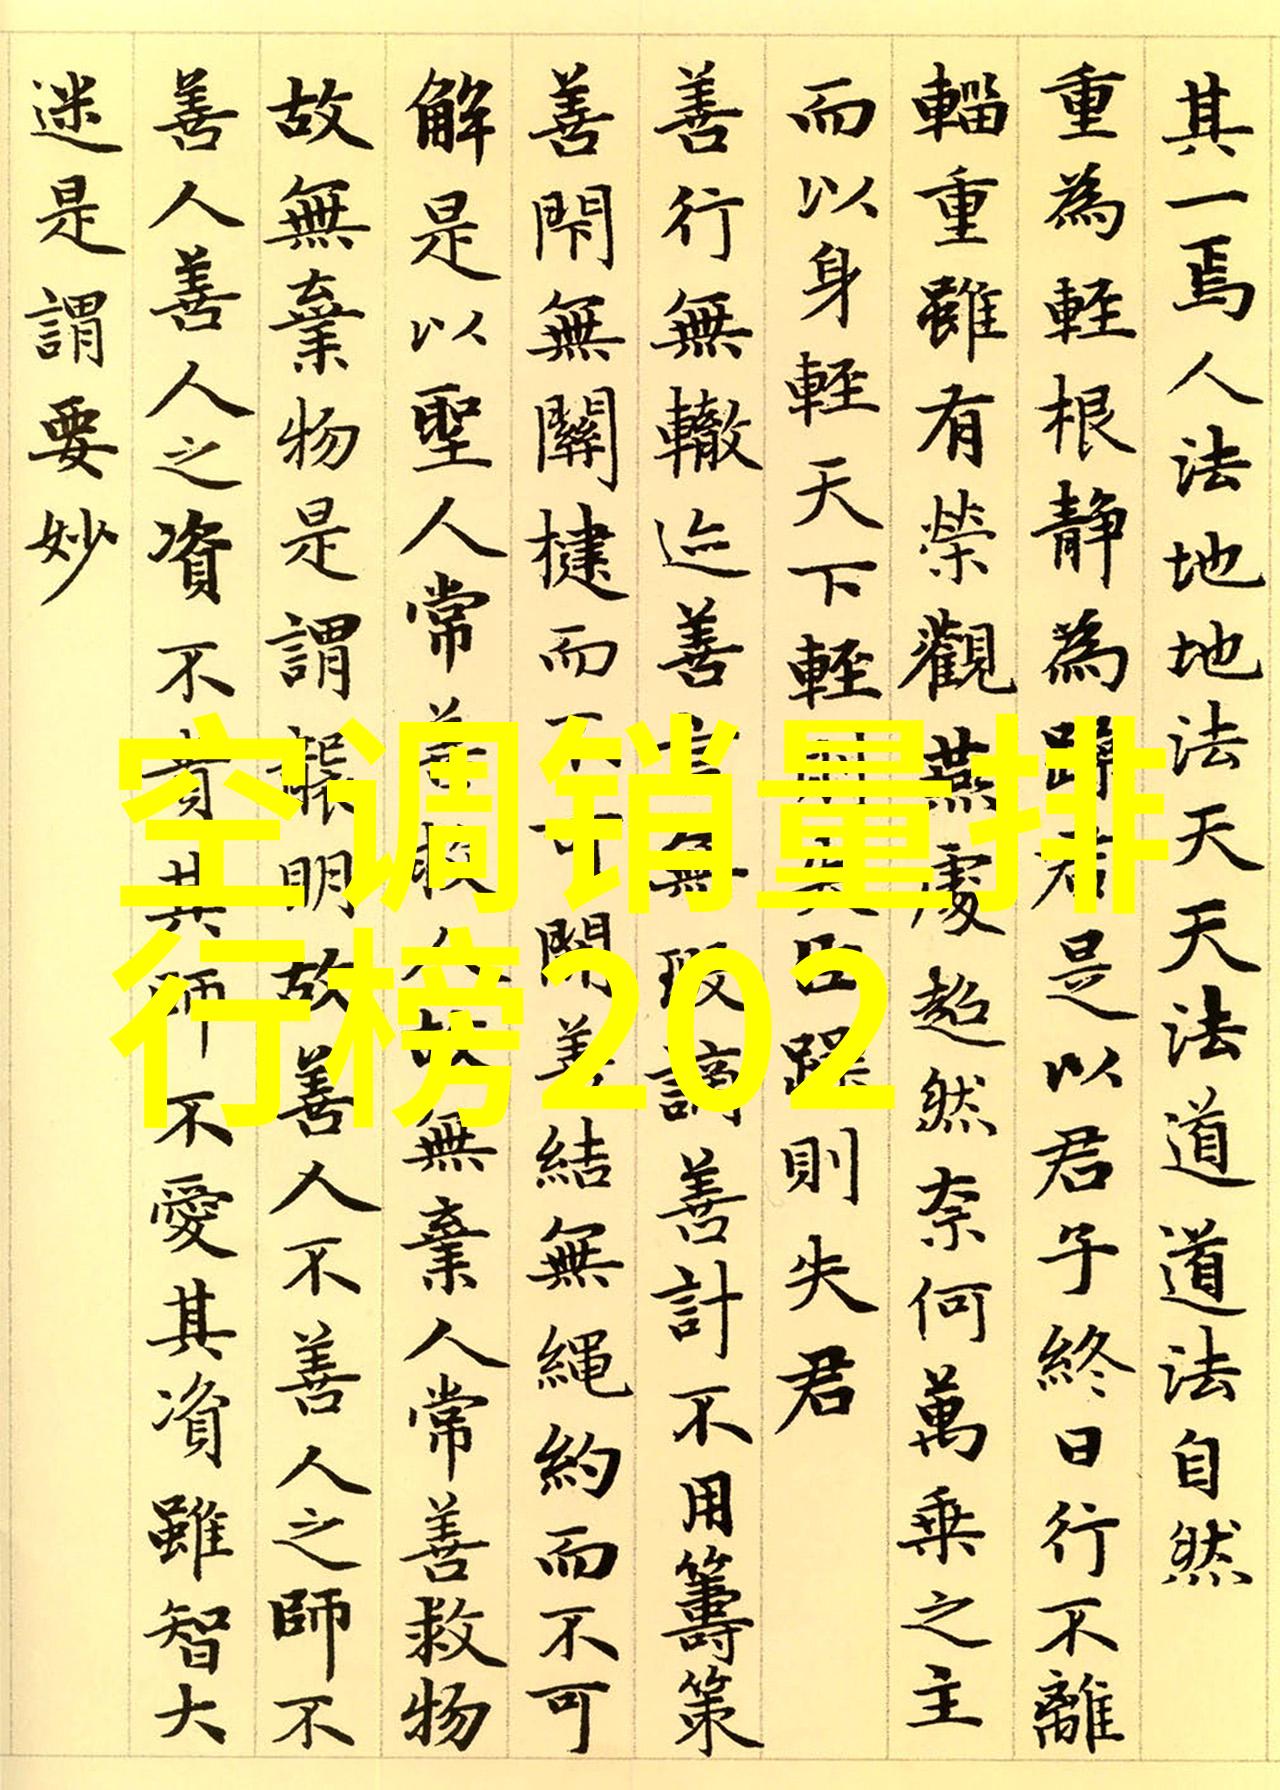 其一焉人法地地法天天法道道法自然
重為輕根靜為躁君是以君子終日行不離
輜重雖有榮觀燕處超然奈何萬乘之主
而以身輕天下輕則失臣躁則失君
善行無轍迹善言無瑕謫善計不用籌策
善閉無關楗而不可開善結無繩約而不可
解是以聖人常善救人故無棄人常善救物
故無棄物是謂襲明故善人不善人之師不
善人善人之資不貴其師不愛其資雖智大
迷是謂要妙
空调销量排
行榜202